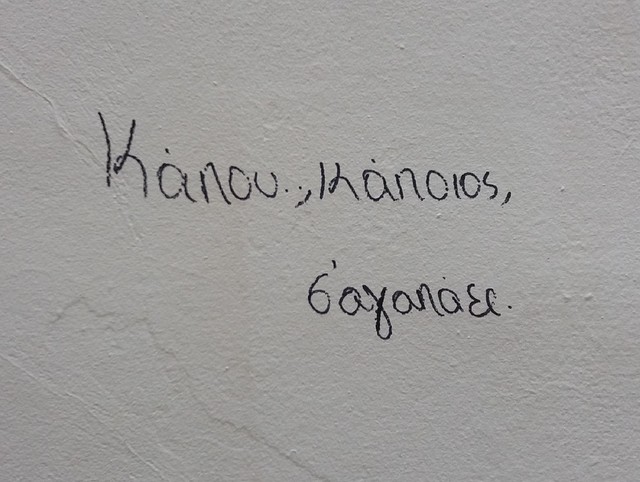 Κάπου.., κάποιος,
σ'αγαπάει.